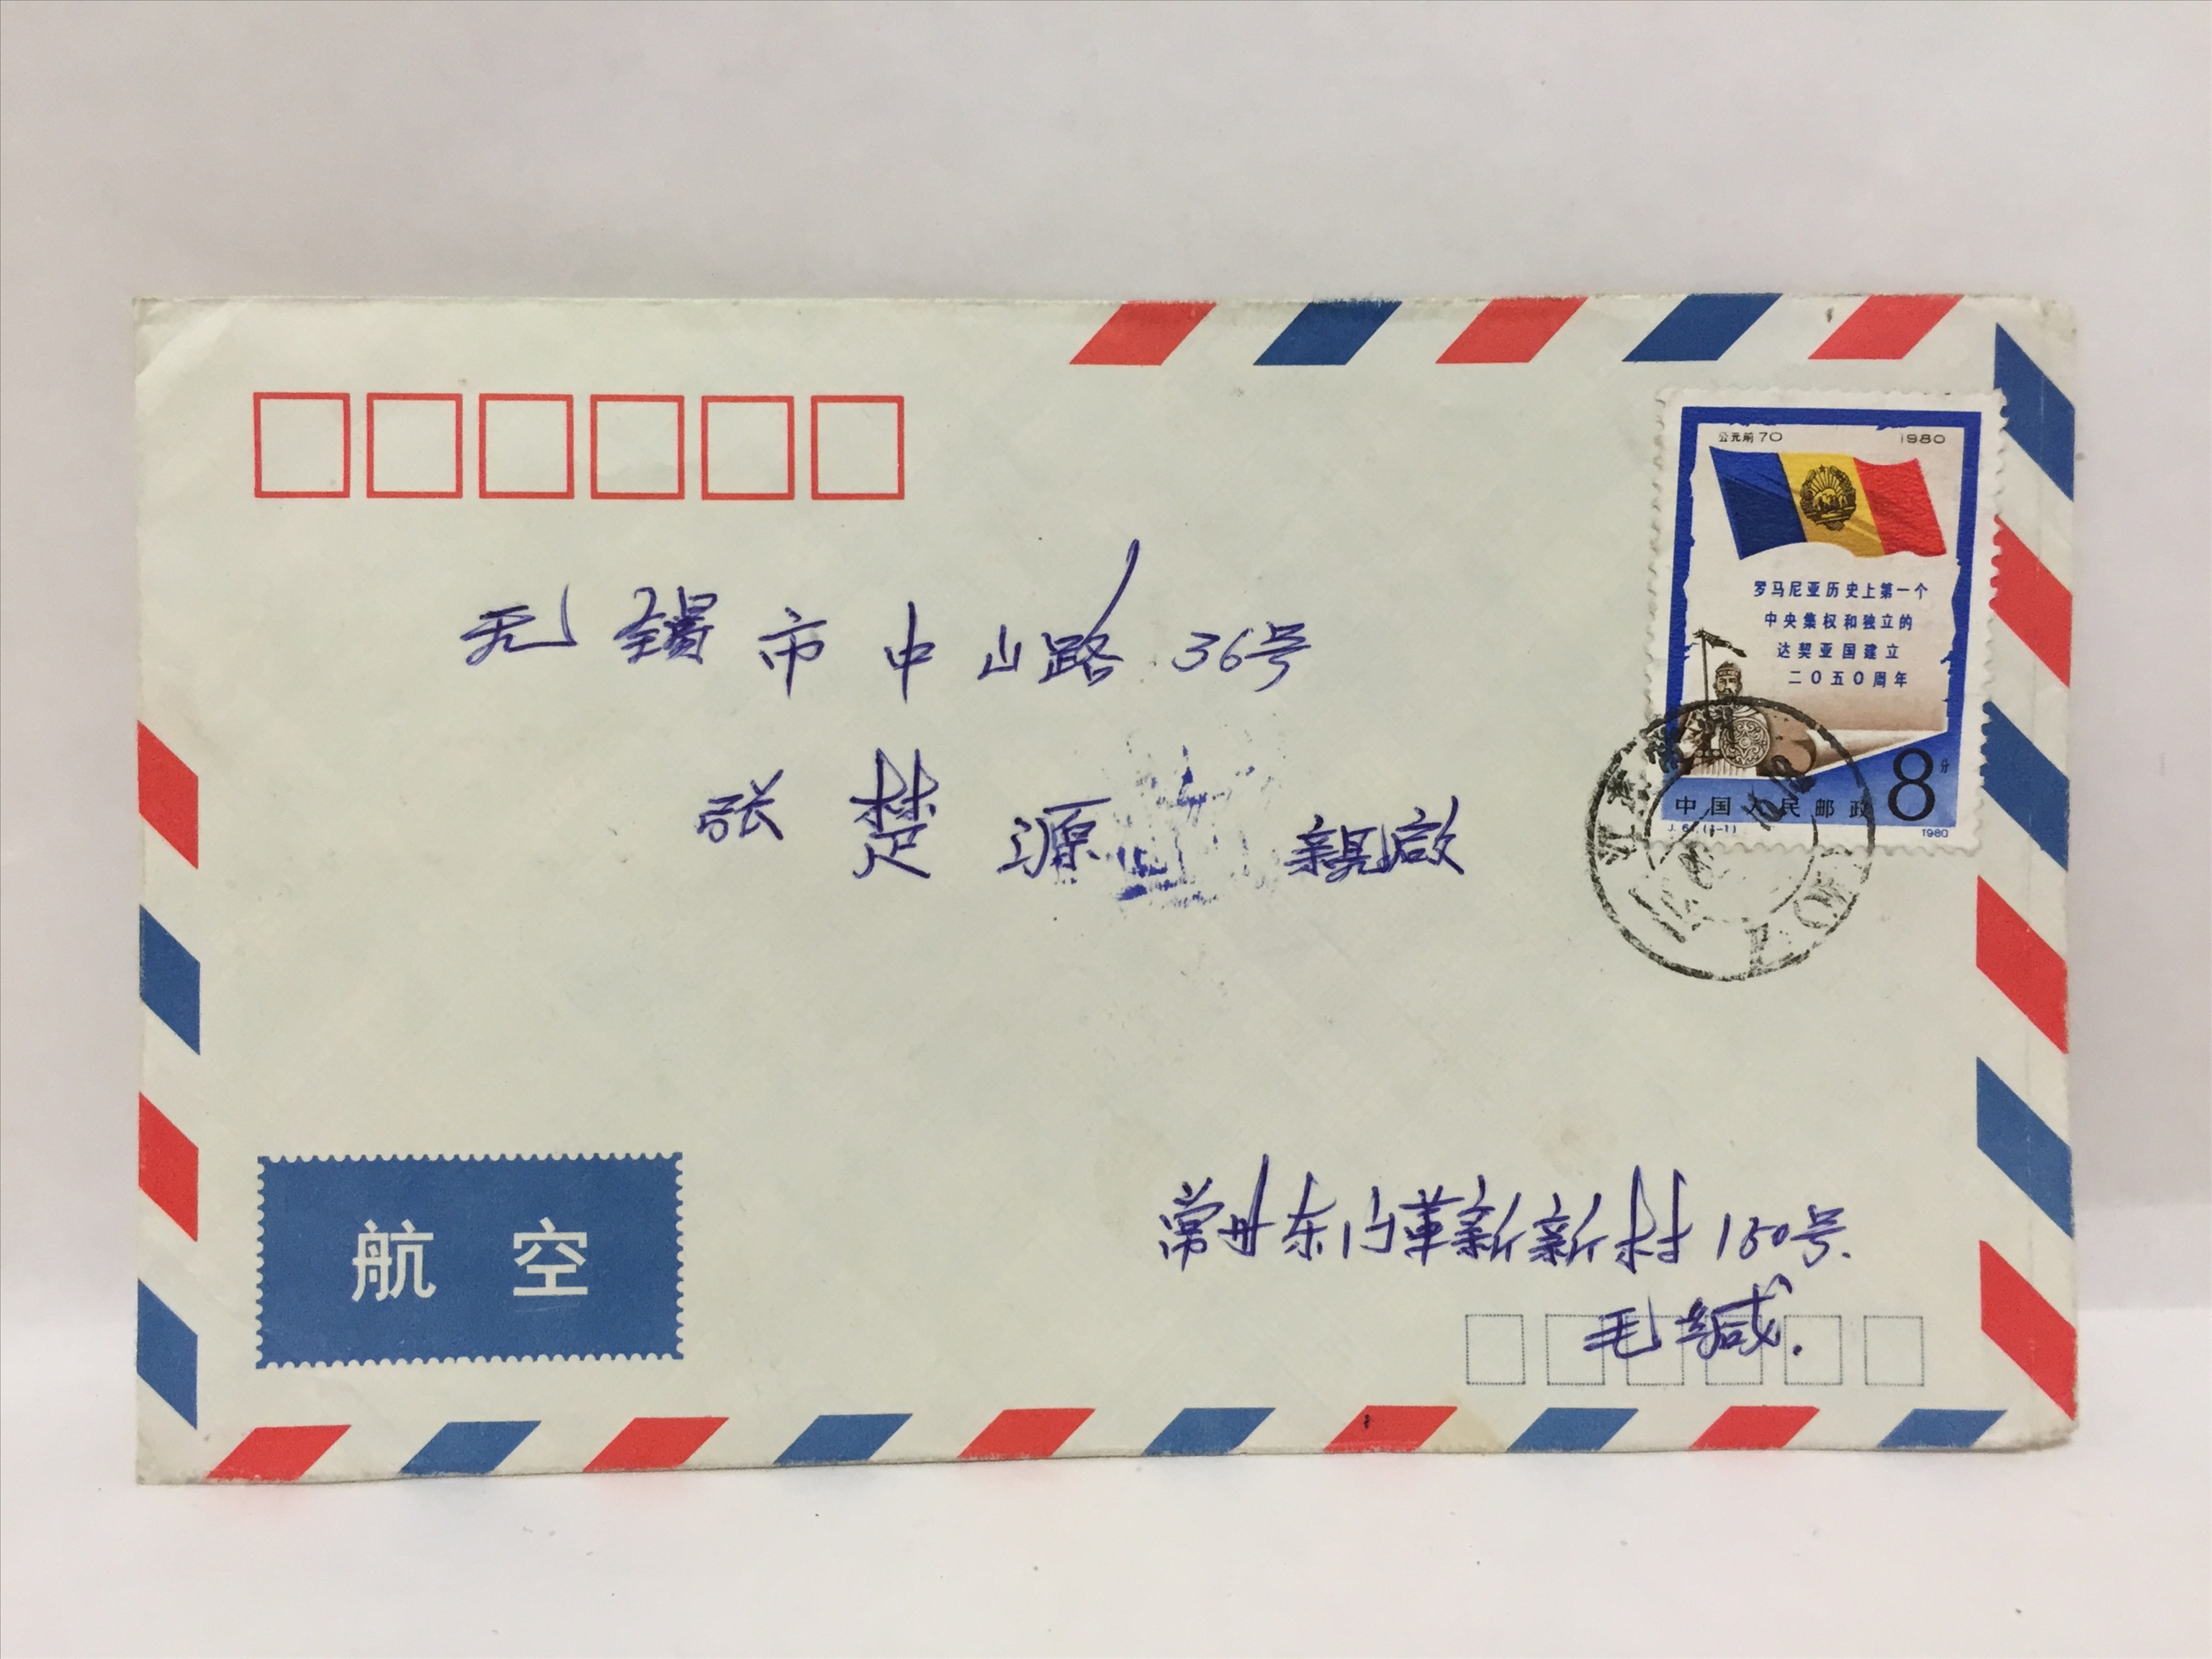 公元前70 1980
罗马尼亚历史上第一个
中央集权和独立的
达契亚国建立
二〇五〇周年
8分
中国人民邮政
J.61.(1-1) 1980
无锡市中山路36号
张楚源 亲启
航空
常州东门革新新村150号.
毛缄.